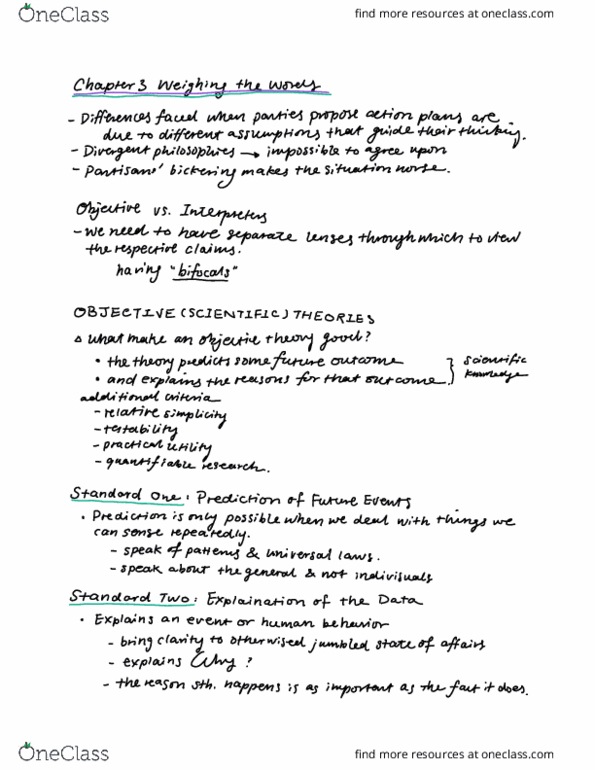 OneClass
find more resources at oneclass.com
Chapter 3 Weighing the Words
- Differences faced when parties propose action plans are
due to different assumptions that guide their thinking.
- Divergent philosophies → impossible to agree upon
- Partisans' bickering makes the situation worse.
Objective vs. Interpreters
- we need to have separate lenses through which to view
the respective claims.
having "bifocals"
OBJECTIVE (SCIENTIFIC) THEORIES
△ what make an objective theory good?
• the theory predicts some future outcome
• and explains the reasons for that outcome
} scientific
knowledge
additional criteria
- relative simplicity
- testability
- practical utility
- quantifiable research.
Standard One: Prediction of Future Events
• Prediction is only possible when we deal with things we
can sense repeatedly.
- speak of patterns & universal laws.
- speak about the general & not indivisuals
Standard Two: Explaination of the Data
• Explains an event or human behavior
- bring clarity to otherwised jumbled state of affairs
- explains Why?
- the reason sth. happens is as important as the fact it does.
OneClass
find more resources at oneclass.com